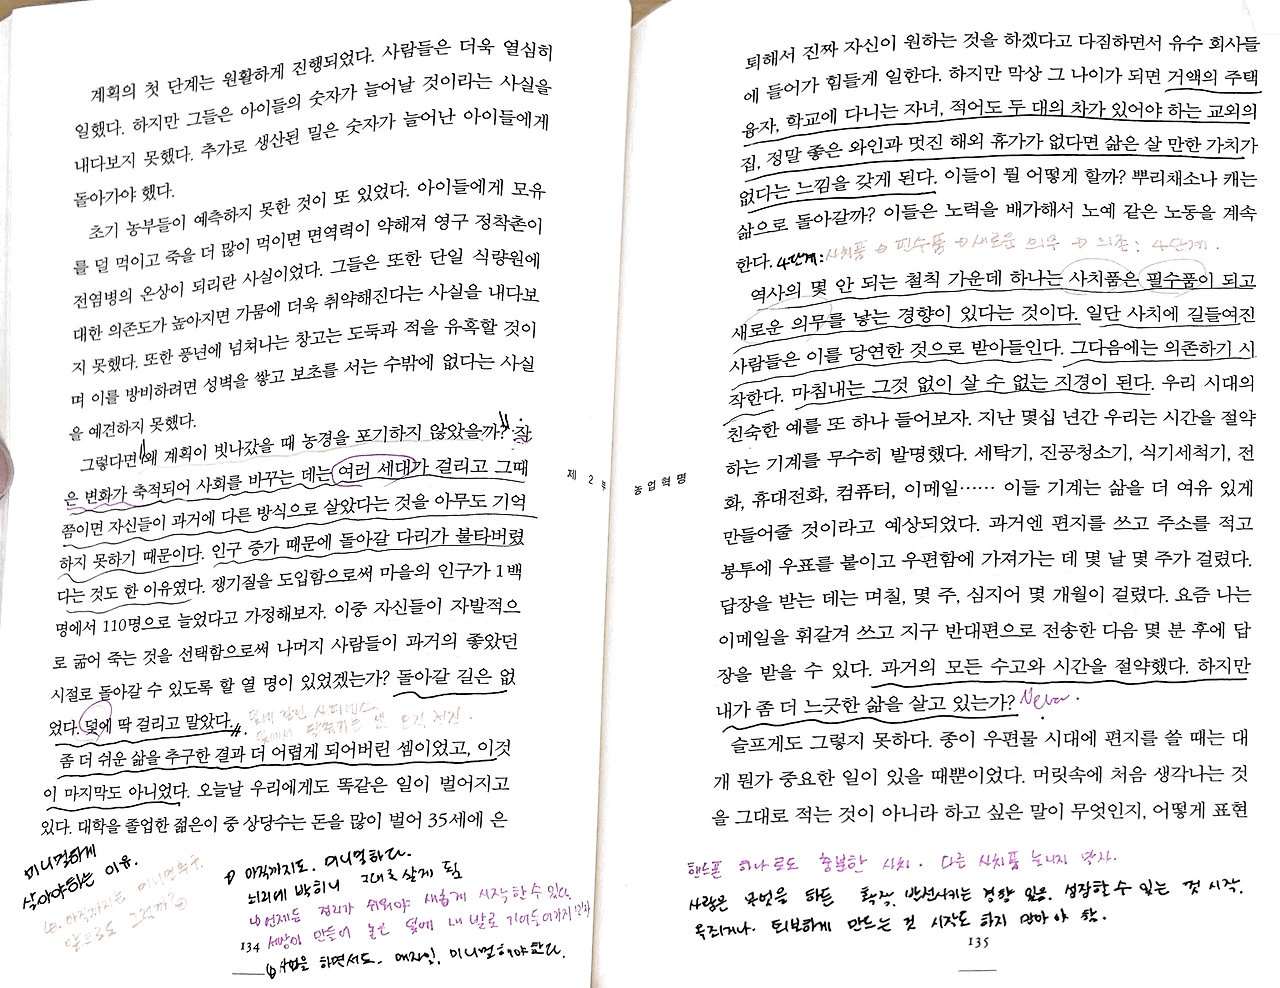 계획의 첫 단계는 원활하게 진행되었다. 사람들은 더욱 열심히
일했다. 하지만 그들은 아이들의 숫자가 늘어날 것이라는 사실을
내다보지 못했다. 추가로 생산된 밀은 숫자가 늘어난 아이들에게
돌아가야 했다.
초기 농부들이 예측하지 못한 것이 또 있었다. 아이들에게 모유
를 덜 먹이고 죽을 더 많이 먹이면 면역력이 약해져 영구 정착촌이
전염병의 온상이 되리란 사실이었다. 그들은 또한 단일 식량원에
대한 의존도가 높아지면 가뭄에 더욱 취약해진다는 사실을 내다보
지 못했다. 또한 풍년에 넘쳐나는 창고는 도둑과 적을 유혹할 것이
며 이를 방비하려면 성벽을 쌓고 보초를 서는 수밖에 없다는 사실
을 예견하지 못했다.
그렇다면 왜 계획이 빗나갔을 때 농경을 포기하지 않았을까? 작
은 변화가 축적되어 사회를 바꾸는 데는 여러 세대가 걸리고 그때
쯤이면 자신들이 과거에 다른 방식으로 살았다는 것을 아무도 기억
하지 못하기 때문이다. 인구 증가 때문에 돌아갈 다리가 불타버렸
다는 것도 한 이유였다. 쟁기질을 도입함으로써 마을의 인구가 1백
명에서 110명으로 늘었다고 가정해보자. 이중 자신들이 자발적으
로 굶어 죽는 것을 선택함으로써 나머지 사람들이 과거의 좋았던
시절로 돌아갈 수 있도록 할 열 명이 있었겠는가? 돌아갈 길은 없
었다. 덫에 딱 걸리고 말았다.
좀 더 쉬운 삶을 추구한 결과 더 어렵게 되어버린 셈이었고, 이것
이 마지막도 아니었다. 오늘날 우리에게도 똑같은 일이 벌어지고
있다. 대학을 졸업한 젊은이 중 상당수는 돈을 많이 벌어 35세에 은
미니멀하게
살아야하는 이유.
아직까지도. 미니멀하다.
뇌리에 박히니 그대로 살게 됨
언제든 정리가 쉬워야 새롭게 시작할 수 있다.
세상이 만들어 놓은 덫에 내 발로 기어들어가지 말자
하면서도. 미니멀 해야한다.
134
제 2 부
농업혁명
퇴해서 진짜 자신이 원하는 것을 하겠다고 다짐하면서 유수 회사들
에 들어가 힘들게 일한다. 하지만 막상 그 나이가 되면 거액의 주택
융자, 학교에 다니는 자녀, 적어도 두 대의 차가 있어야 하는 교외의
집, 정말 좋은 와인과 멋진 해외 휴가가 없다면 삶은 살 만한 가치가
없다는 느낌을 갖게 된다. 이들이 뭘 어떻게 할까? 뿌리채소나 캐는
삶으로 돌아갈까? 이들은 노력을 배가해서 노예 같은 노동을 계속
한다. 4단계: 사치품 → 필수품 → 새로운 의무 → 의존: 4단계.
역사의 몇 안 되는 철칙 가운데 하나는 사치품은 필수품이 되고
새로운 의무를 낳는 경향이 있다는 것이다. 일단 사치에 길들여진
사람들은 이를 당연한 것으로 받아들인다. 그다음에는 의존하기 시
작한다. 마침내는 그것 없이 살 수 없는 지경이 된다. 우리 시대의
친숙한 예를 또 하나 들어보자. 지난 몇십 년간 우리는 시간을 절약
하는 기계를 무수히 발명했다. 세탁기, 진공청소기, 식기세척기, 전
화, 휴대전화, 컴퓨터, 이메일…… 이들 기계는 삶을 더 여유 있게
만들어줄 것이라고 예상되었다. 과거엔 편지를 쓰고 주소를 적고
봉투에 우표를 붙이고 우편함에 가져가는 데 몇 날 몇 주가 걸렸다.
답장을 받는 데는 며칠, 몇 주, 심지어 몇 개월이 걸렸다. 요즘 나는
이메일을 휘갈겨 쓰고 지구 반대편으로 전송한 다음 몇 분 후에 답
장을 받을 수 있다. 과거의 모든 수고와 시간을 절약했다. 하지만
내가 좀 더 느긋한 삶을 살고 있는가? Never.
슬프게도 그렇지 못하다. 종이 우편물 시대에 편지를 쓸 때는 대
개 뭔가 중요한 일이 있을 때뿐이었다. 머릿속에 처음 생각나는 것
을 그대로 적는 것이 아니라 하고 싶은 말이 무엇인지, 어떻게 표현
핸드폰 하나로도 충분한 사치. 다른 사치품 늘리지 말자.
사람은 무엇을 하든 확장, 반복시키는 경향 있음. 성장할 수 있는 것 시작.
퇴보하게 만드는 것 시작도 하지 말아야 함.
135